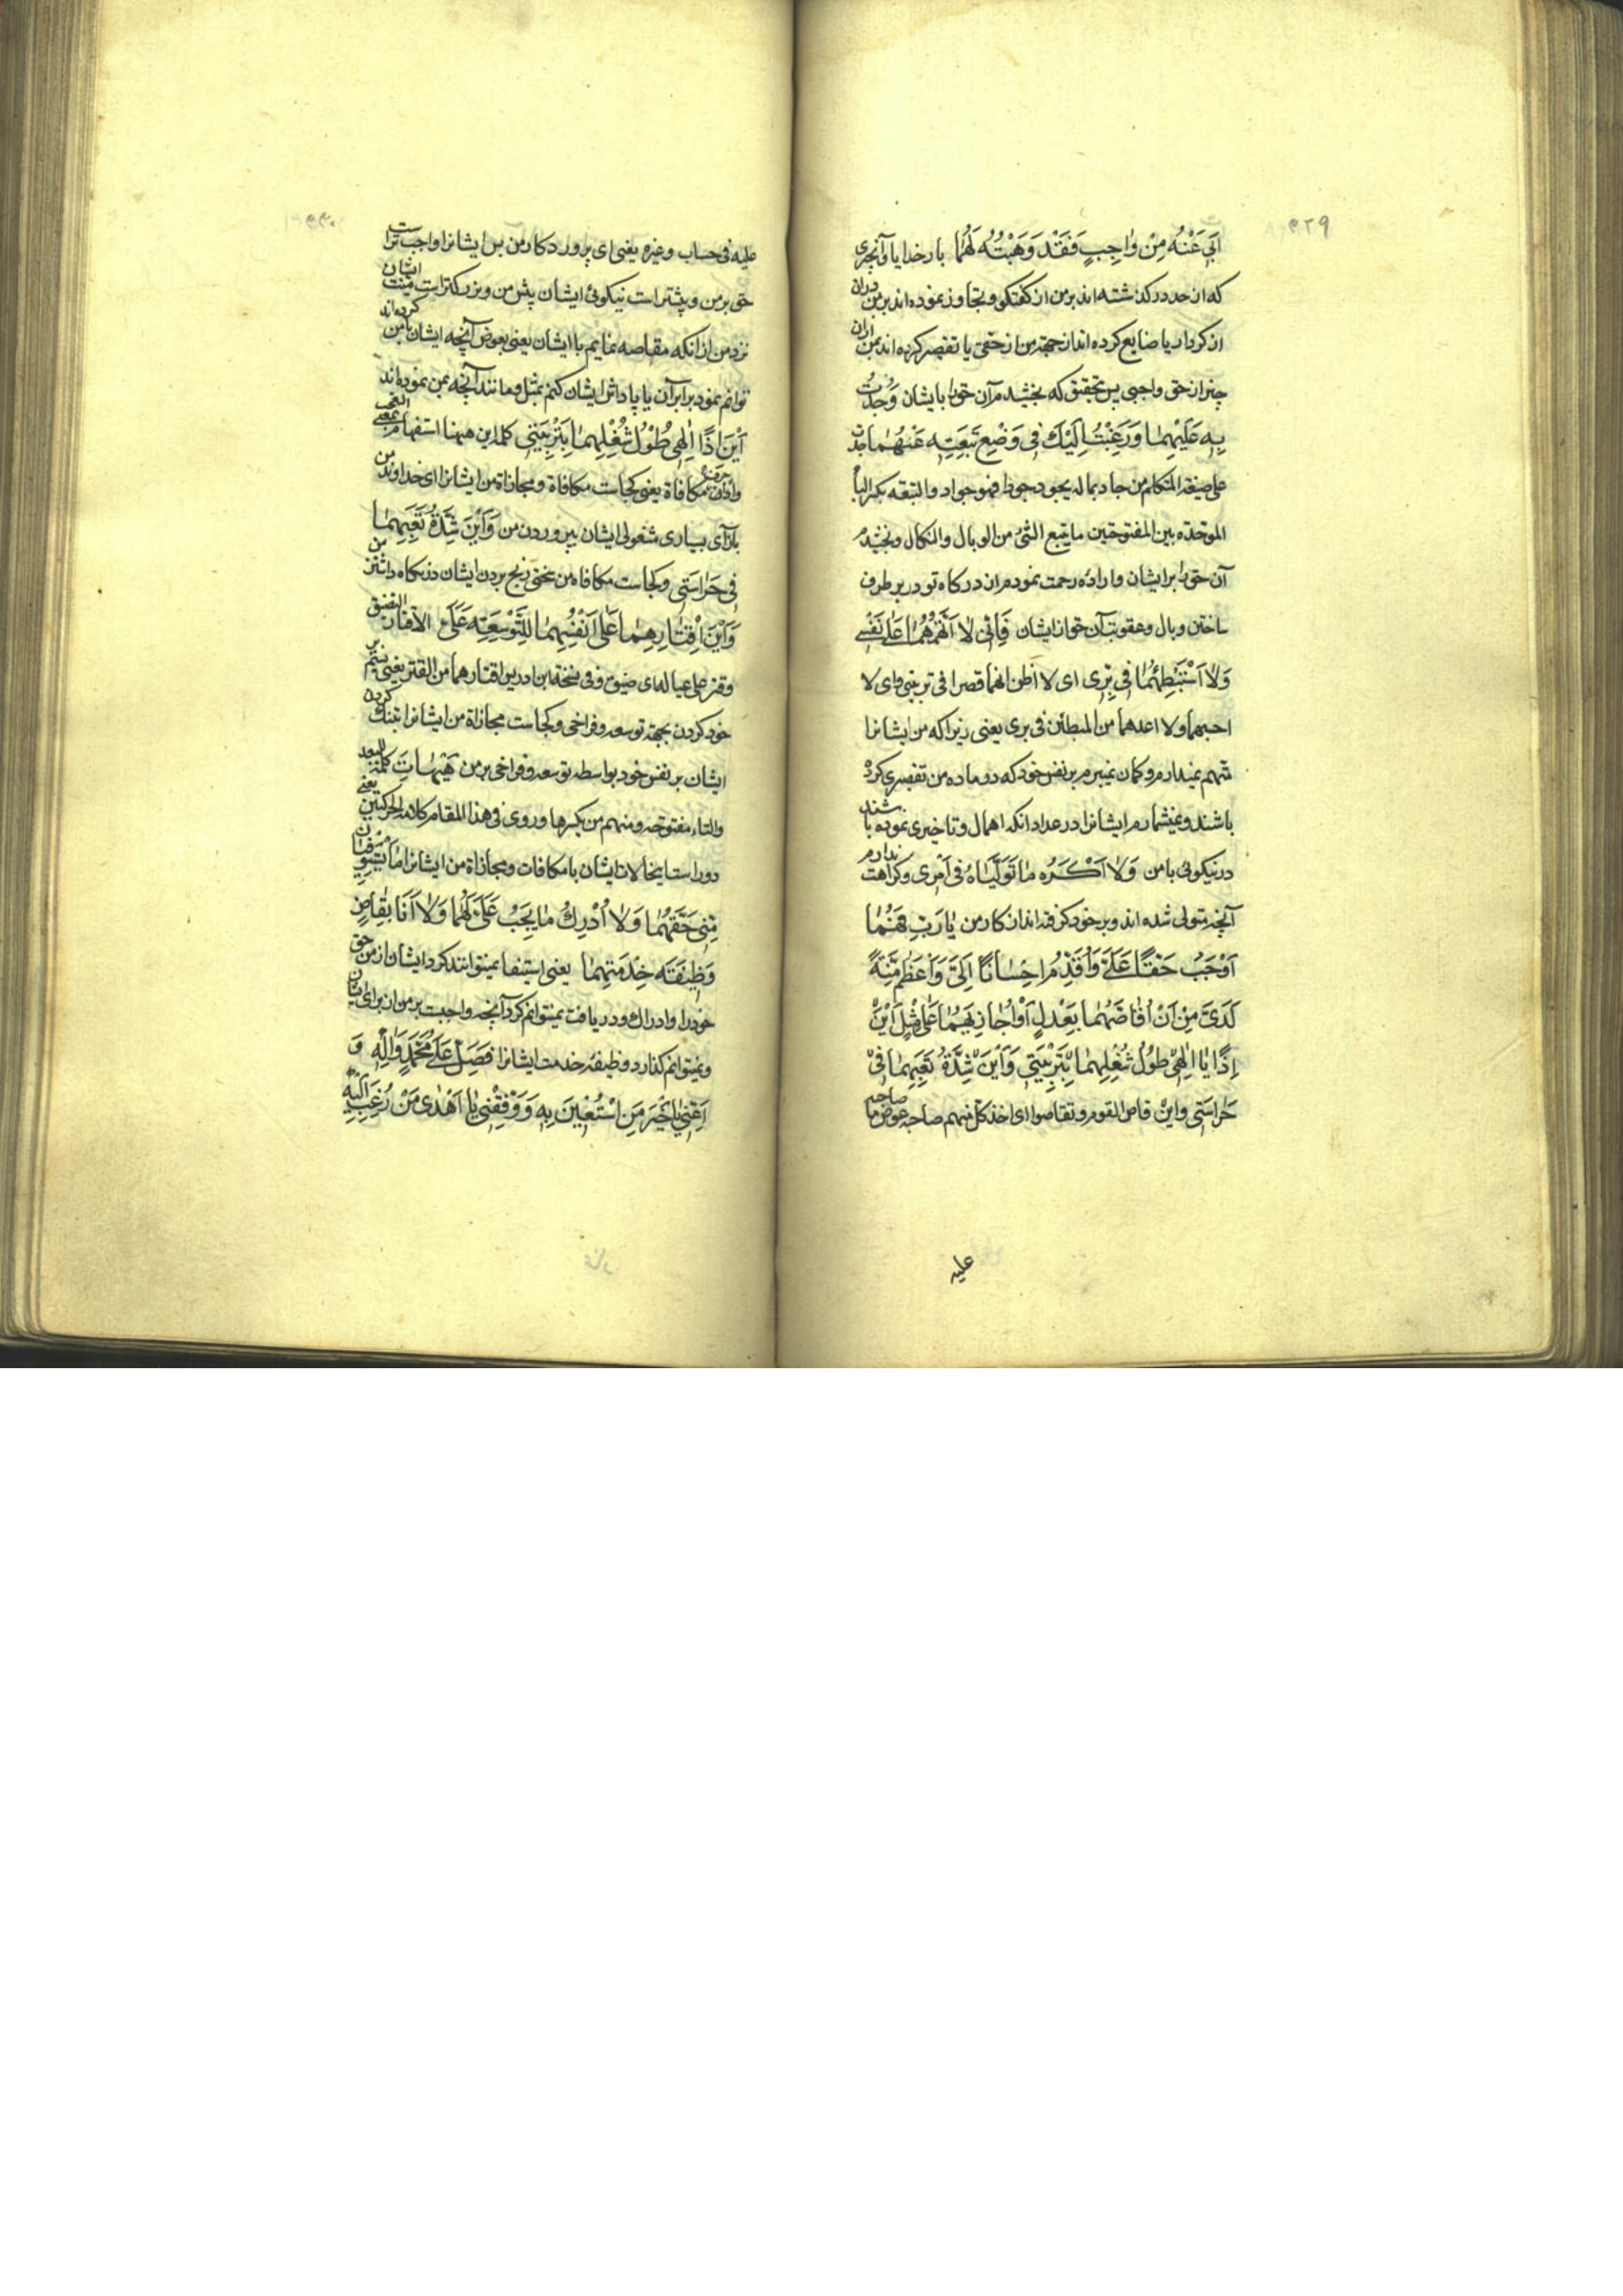 ۵۲۹
اَبی عَنْهُ مِنْ وٰاجِبٍ فَقَدْ وَهَبْتُهُ لَهُمٰا بار خدایا وآنچیزی
که از حد درکذشته اند بر من از کفتکو وتجاوز نموده اند بر من دران
از کردار یا ضایع کرده اند از جهة من از حقی یا تقصیر کرده اند بمن ازان
چیز از حق واجبی پس بتحقیق که بخشیدم آن حق را بایشان وَجُدْتُ
بِهِ عَلَیْهِمٰا وَرَغِبْتُ اِلَیْكَ فی وَضْعِ تَبِعَتِهِ عَنْهُمٰا جدت
علی صیغة المتکلم من جاد بماله یجود جودا فهو جواد والتبعة بکسر الباء
الموحدة بین المفتوحتین ما یتبع الشئ من الوبال والنکال وبخشیدم
آن حق را بر ایشان واراده رحمت نمودم از درکاه تو در بر طرف
ساختن وبال وعقوبت آن حق از ایشان فَاِنّی لاٰ اَتَّهِمُهُمٰا عَلیٰ نَفْسی
وَلاٰ اَسْتَبْطِئُهُمٰا فی بِرّی ای لا اظن انهما قصرا فی تربیتی وای لا
احسبهما ولا اعدهما من المبطئن فی بری یعنی زیرا که من ایشانرا
متهم نمیدارم وکمان نمیبرم بر نفس خود که در ماده من تقصیری کرده
باشند ونمیشمارم ایشانرا در عداد انکه اهمال وتاخیری نموده باشند
در نیکوئی با من وَلاٰ اَکْرَهُ مٰا تَوَلَّیٰاهُ فی اَمْری وکراهت ندارم
آنچه متولی شده اند وبر خود کرفته اند از کار من یٰا رَبِّ فَهُمٰا
اَوْجَبُ حَقًّا عَلَیَّ وَاَقْدَمُ اِحْسٰانًا اِلَیَّ وَاَعْظَمُ مِنَّةً
لَدَیَّ مِنْ اَنْ اُقٰاصَّهُمٰا بِعَدْلٍ اَوْ اُجٰازِیَهُمٰا عَلیٰ مِثْلٍ اَیْنَ
اِذًا یٰا اِلٰهی طُولُ شُغْلِهِمٰا بِتَرْبِیَتی وَاَیْنَ شِدَّةُ تَعَبِهِمٰا فی
حَرٰاسَتی واین قاص القوم وتقاصوا ای اخذ کل منهم صاحبه عوض ما صاحبه
علیه
۵۳۰
علیه فی حساب وغیره یعنی ای پروردکار من پس ایشانرا واجب تر است
حق بر من وپیشتر است نیکوئی ایشان پیش من وبزرکتر است منت ایشان
نزد من از انکه مقاصه نمایم با ایشان یعنی بعوض آنچه ایشان بامن کرده اند
توانم نمود برابر آن یا پاداش ایشان کنم بمثل ومانند آنچه بمن نموده اند
اَیْنَ اِذًا اِلٰهی طُولُ شُغْلِهِمٰا بِتَرْبِیَتی کلمه این ههنا استفهام بمعنی التعجب
واذا حرف مکافاة یعنی کجاست مکافاة ومجازاة من ایشانرا ای خداوند من
بازآی بسیاری شغولی ایشان بپروردن من وَاَیْنَ شِدَّةُ تَعَبِهِمٰا
فی حَرٰاسَتی وکجاست مکافاه من سختی رنج بردن ایشان در نکاه داشتن من
وَاَیْنَ اِقْتٰارُهِمٰا عَلیٰ اَنْفُسِهِمٰا لِلتَّوْسِعَةِ عَلَیَّ الاقتار التضیق
وقتر علی عیاله ای ضیق وفی نسخة ابن ادریس اقتارهما من القتر یعنی ستم بر
خود کردن بجهة توسعه وفراخی وکجاست مجازاة من ایشانرا بتنك کردن
ایشان بر نفس خود بواسطه توسعه وفراخی بر من هَیْهٰاتَ کلمة للبعد
والتاء مفتوحه ومنهم من یکسرها وروی فی هذا المقام کلا الحرکتین یعنی
دور است اینحالات ایشان با مکافات ومجازاة من ایشانرا مٰا یَسْتَوْفِیٰانِ
مِنّی حَقَّهُمٰا وَلاٰ اُدْرِكُ مٰا یَجِبُ عَلَیَّ لَهُمٰا وَلاٰ اَنَا بِقٰاضٍ
وَظیفَةَ خِدْمَتِهِمٰا یعنی استیفا نمیتوانند کرد ایشان از من حق
خود را وادراك ودریافت نمیتوانم کرد آنچه واجبت بر من از برای ایشان
ونمیتوانم کذارد وظیفهٔ خدمت ایشانرا فَصَلِّ عَلیٰ مُحَمَّدٍ وَاٰلِهِ وَ
اَعِنّی یٰا خَیْرَ مَنِ اسْتُعینَ بِهِ وَوَفِّقْنی یٰا اَهْدیٰ مَنْ رُغِبَ اِلَیْهِ